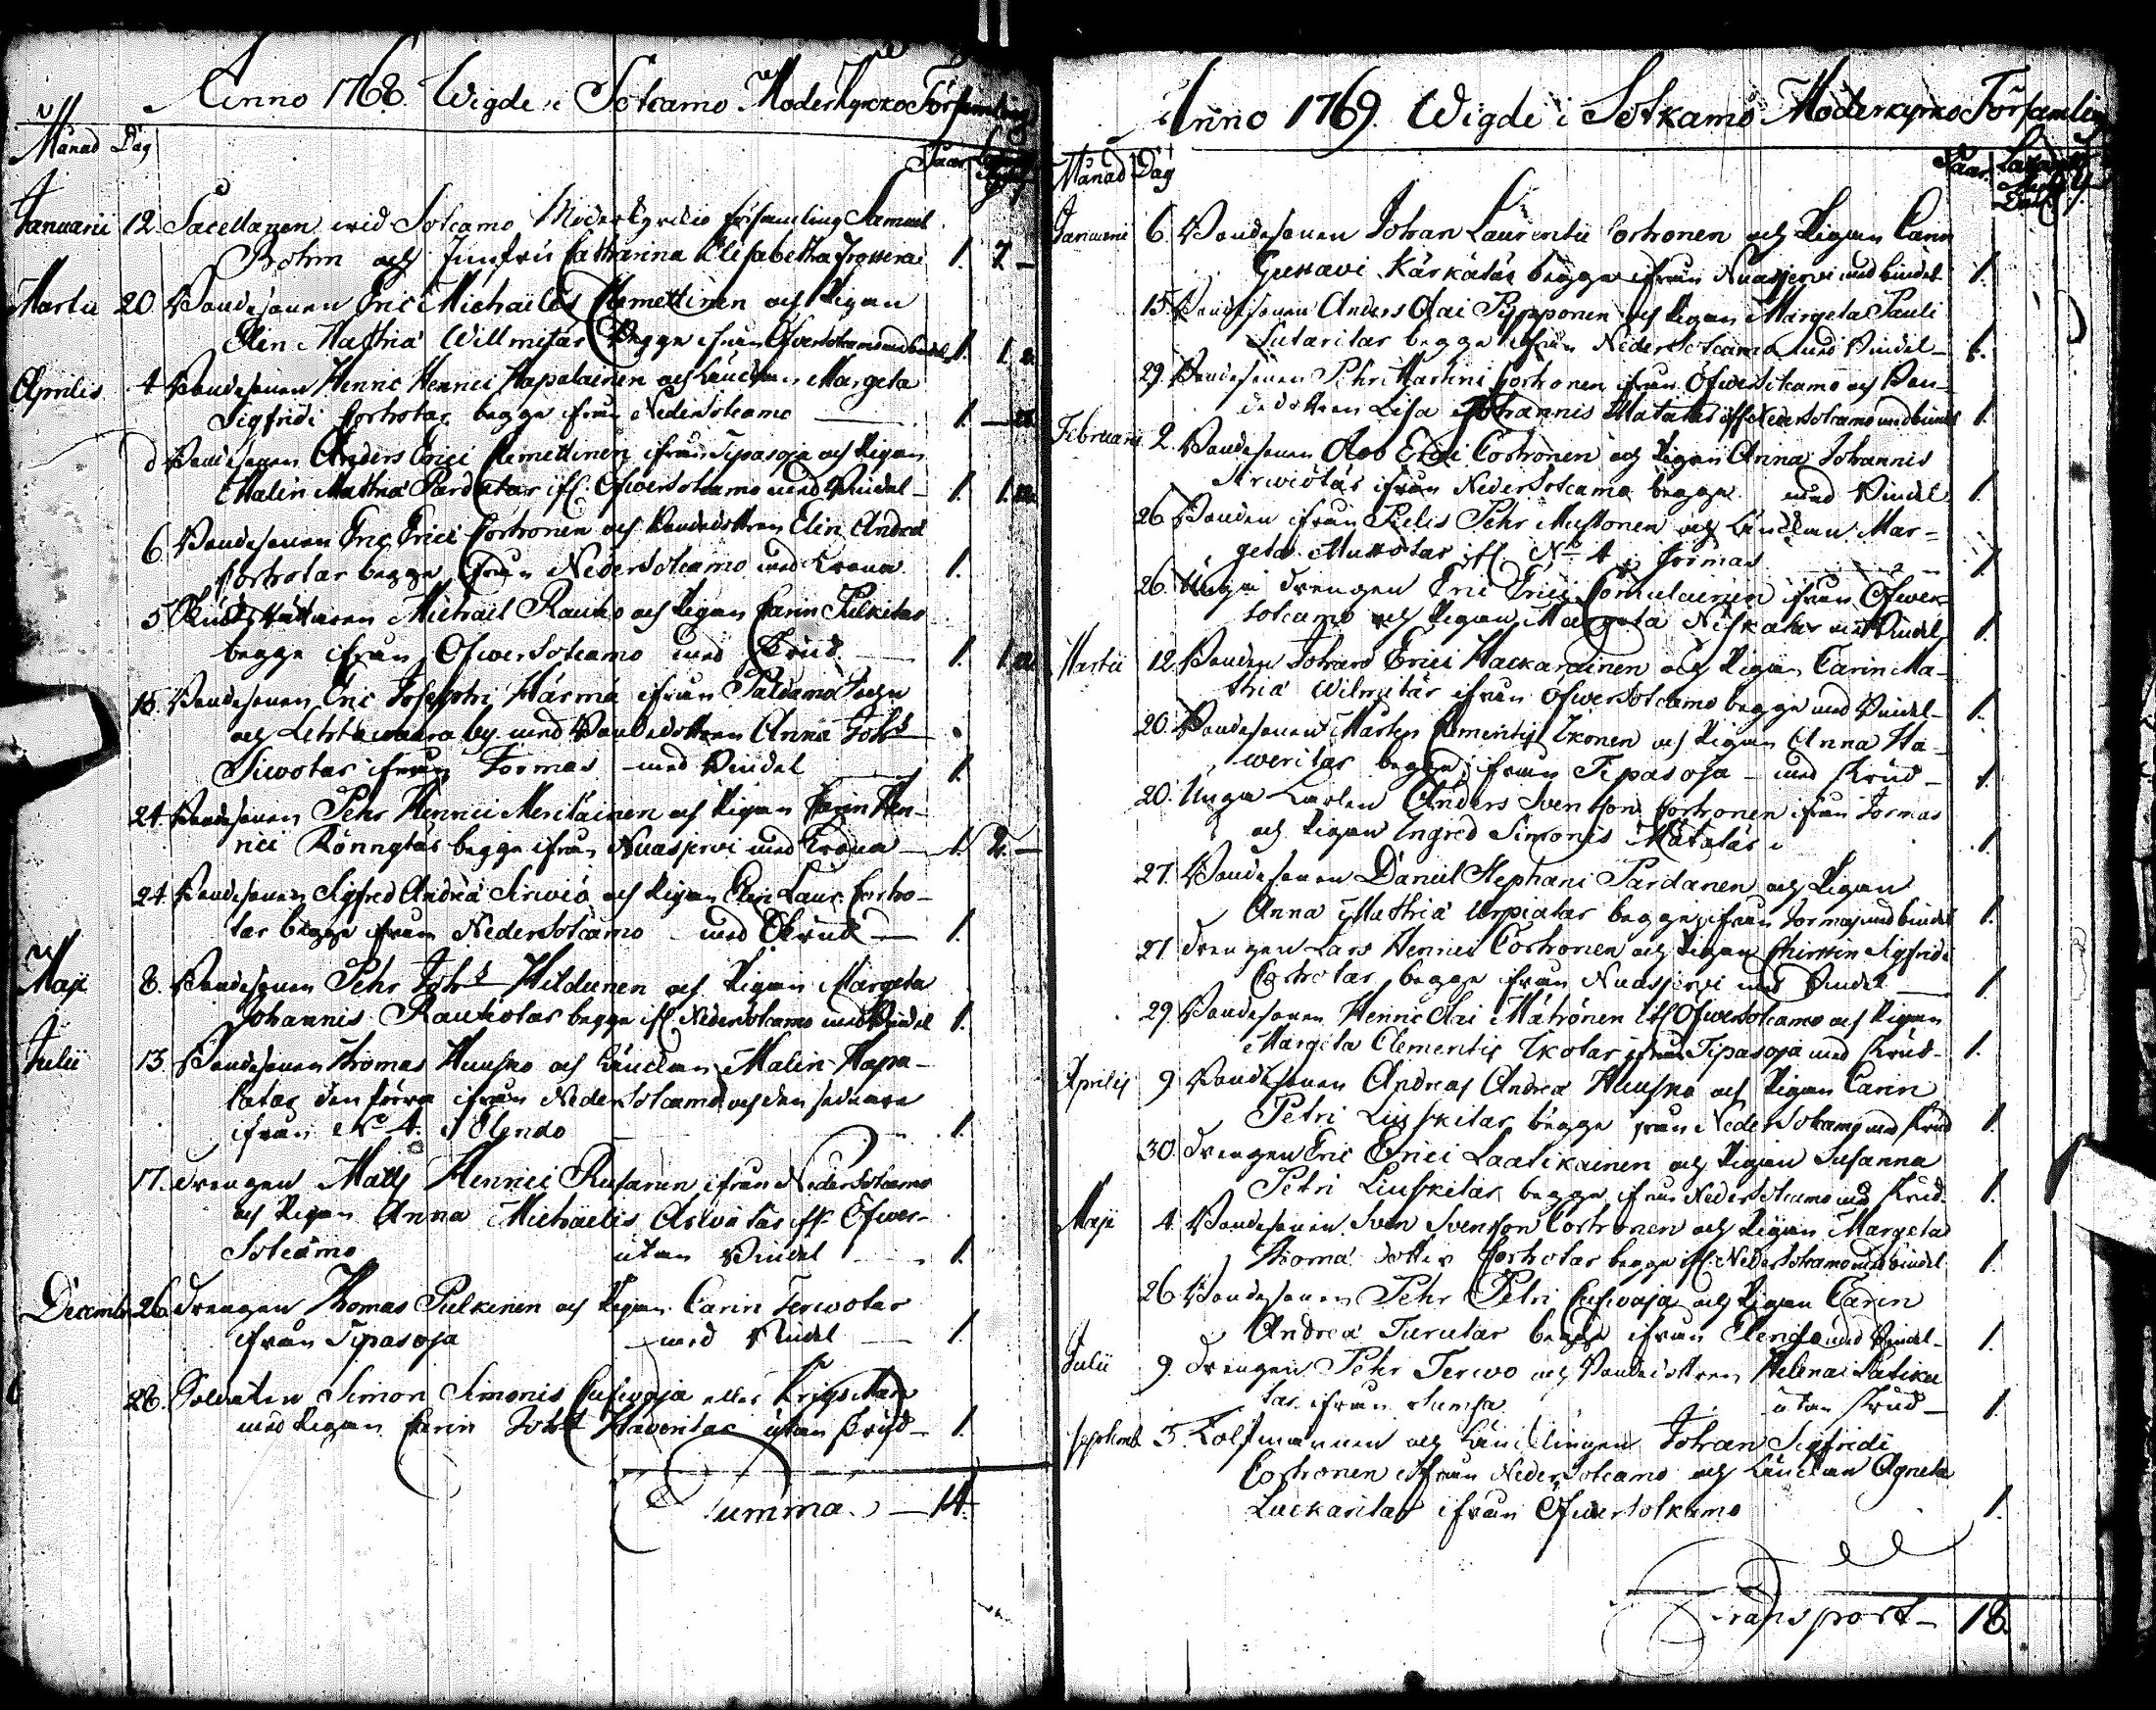 Anno 1768. Wigde i Sotcamo Moderkyrko Församling
Månad Dag Paar
Januarii 12. Sacellanen wid Sotcamo Moderkyrkio församling Samuel
Bohm och Jungfru Catharina Elisabetha 1. 7. —
Martii 20. Bondesonen Eric Michaelis Clemettinen och Pigan
Elin Matthiæ Willmitar begge ifrån Öfwersotcamo 1. 1.
Aprilis 4 Bondesonen Henric Henrici Hapalainen och Änckan Margeta
Sigfridi Corhotar begge ifrån Nedersotcamo 1. —
d Bondesonen Anders Erici Clemettinen ifrån Tipasoja och Pigan
Malin Matthiæ Pardatar if. Öfwersotcamo med Bindel — 1. 1.
6. Bondesonen Eric Erici Corhonen och Bondedottren Elin Andreæ
Corhotar begge ifrån Nedersotcamo med Crona 1.
5 Michael Rauho och Pigan Carin Pulkitar
begge ifrån Öfwersotcamo med Skrud 1. 1.
18. Bondesonen Eric Josephi Härmä ifrån Paldamo Sochn
och Lehtowaara by med Bondedottren Anna Joh:s
Siwotar ifrån Jormas med Bindel 1.
24. Bondesonen Pehr Henrici Meriläinen och Pigan Carin Hen-
rici Rönnytär begge ifrån Nuasjerwi med Crona 1. 2. —
24. Bondesonen Sigfred Andreæ Sirwiö och Pigan Elin Laur. Corho-
tar begge ifrån Nedersotcamo med Skrud 1.
Maji 8. Bondesonen Pehr Joh:s Hildunen och Pigan Margeta
Johannis Rauhotar begge if. Nedersotcamo med Bindel 1.
Julii 13. Bondesonen Thomas Huusko och Änckan Malin Hapa-
latar den förra ifrån Nedersotcamo och den sednare
ifrån N:o 4. i Alendo 1.
17. Drengen Matts Henrici Rusanen ifrån Nedersotcamo
och Pigan Anna Michaelis Arwatar if. Öfwer-
Sotcamo utan Bindel 1.
Decemb. 26. Drengen Thomas Pulkinen och Pigan Carin Terwotar
ifrån Tipasoja med Bindel 1.
28. Soldaten Simon Simonis Cusiwaja eller Krigsman
med Pigan Carin Joh:s Haweritar utan Skrud — 1.
Summa — 14.
Anno 1769. Wigde i Sotkamo Moderkyrko Församling
Månad Dag Paar
Januarii 6. Bondesonen Johan Laurentii Corhonen och Pigan Carin
Gustavi Kärkätär begge ifrån Nuasjerwi med bindel 1.
15. Bondesonen Anders Olai Piipponen och Pigan Margeta Pauli
Sutaritar begge ifrån Nedersotcamo med Bindel — 1.
29. Bondesonen Pehr Martini Corhonen ifrån Öfwersotcamo och Bon-
dedottren Lisa Johannis Matatar if. Nedersotcamo med bindel 1.
Februarii 2. Bondesonen Abo Erici Corhonen och Pigan Anna Johannis
Sirwiötär ifrån Nedersotcamo begge med Bindel 1.
26. Bonden ifrån Pielis Pehr Mustonen och Änckan Mar-
geta Mustotar if. N:o 4 i Jormas 1.
26. Unga Drengen Eric Erici Comulainen ifrån Öfwer-
sotcamo och Pigan Margeta Niskatar med Bindel 1.
Martii 12. Bonden Johan Erici Hackarainen och Pigan Carin Ma-
thiæ Wilmitär ifrån Öfwersotcamo begge med Bindel — 1.
20. Bondesonen Mårten Clementis Ikonen och Pigan Anna Ha-
weritar begge ifrån Tipasoja — med Skrud — 1.
20. Unga Karlen Anders Svensson Corhonen ifrån Jormas
och Pigan Ingred Simonis Mätatär 1.
27. Bondesonen Daniel Stephani Pardanen och Pigan
Anna Matthiæ Urpiatar begge ifrån Jormas med bindel 1.
27. Drengen Lars Henrici Corhonen och Pigan Christin Sigfridi
Corhotar begge ifrån Nuasjerwi med Bindel 1.
29. Bondesonen Henric Olai Mähönen if. Öfwersotcamo och Pigan
Margeta Clementis Ikotar ifrån Tipasoja med Skrud — 1.
Aprilis 9. Bondesonen Andreas Andreæ Huusko och Pigan Carin
Petri Liuskitar begge ifrån Nedersotcamo med Skrud 1.
30. Drengen Eric Erici Laatikainen och Pigan Susanna
Petri Liuskitar begge ifrån Nedersotcamo med Skrud 1.
Maji 4. Bondesonen Sven Svensson Corhonen och Pigan Margeta
Thomæ dotter Corhotar begge if. Nedersotcamo med bindel 1.
26. Bondesonen Pehr Petri Cusiwaja och Pigan Carin
Andreæ Turutar begge ifrån Alendo med Bindel — 1.
Julii 9. Drengen Pehr Terwo och Bondedottren Helena Latika
tar ifrån utan Skrud — 1.
Septemb. 3. Tolfmannen och Änclingen Johan Sigfridi
Corhonen ifrån Nedersotcamo och Änckan Agneta
Luckaritar ifrån Öfwersotkamo 1.
Transport — 18.